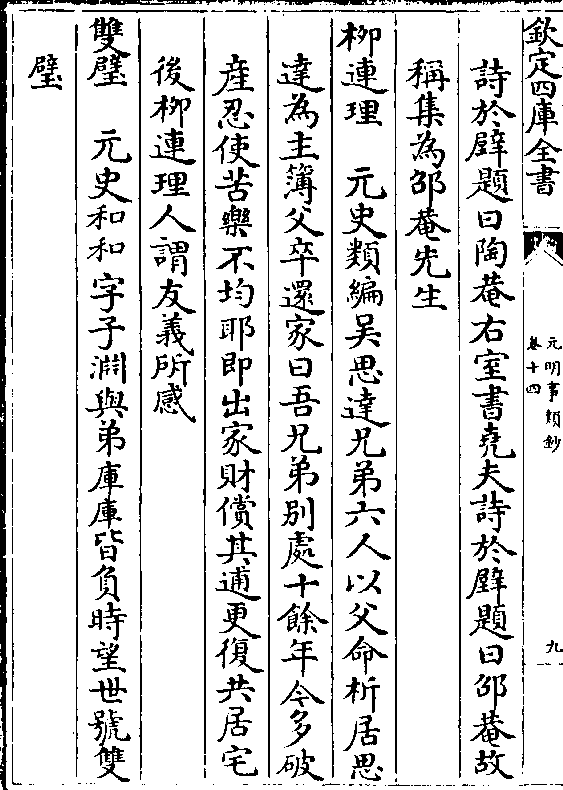 欽定四庫全書
元明事類鈔
卷十四
九
詩於壁題曰陶菴右室書堯夫詩於壁題曰邵菴故
稱集為邵菴先生
柳連理　元史類編吴思達兄弟六人以父命析居思
達為主簿父卒還家曰吾兄弟别處十餘年今多破
産忍使苦樂不均耶即出家財償其逋更復共居宅
後柳連理人謂友義所感
雙璧　元史和和字子淵與弟庫庫皆負時望世號雙
璧